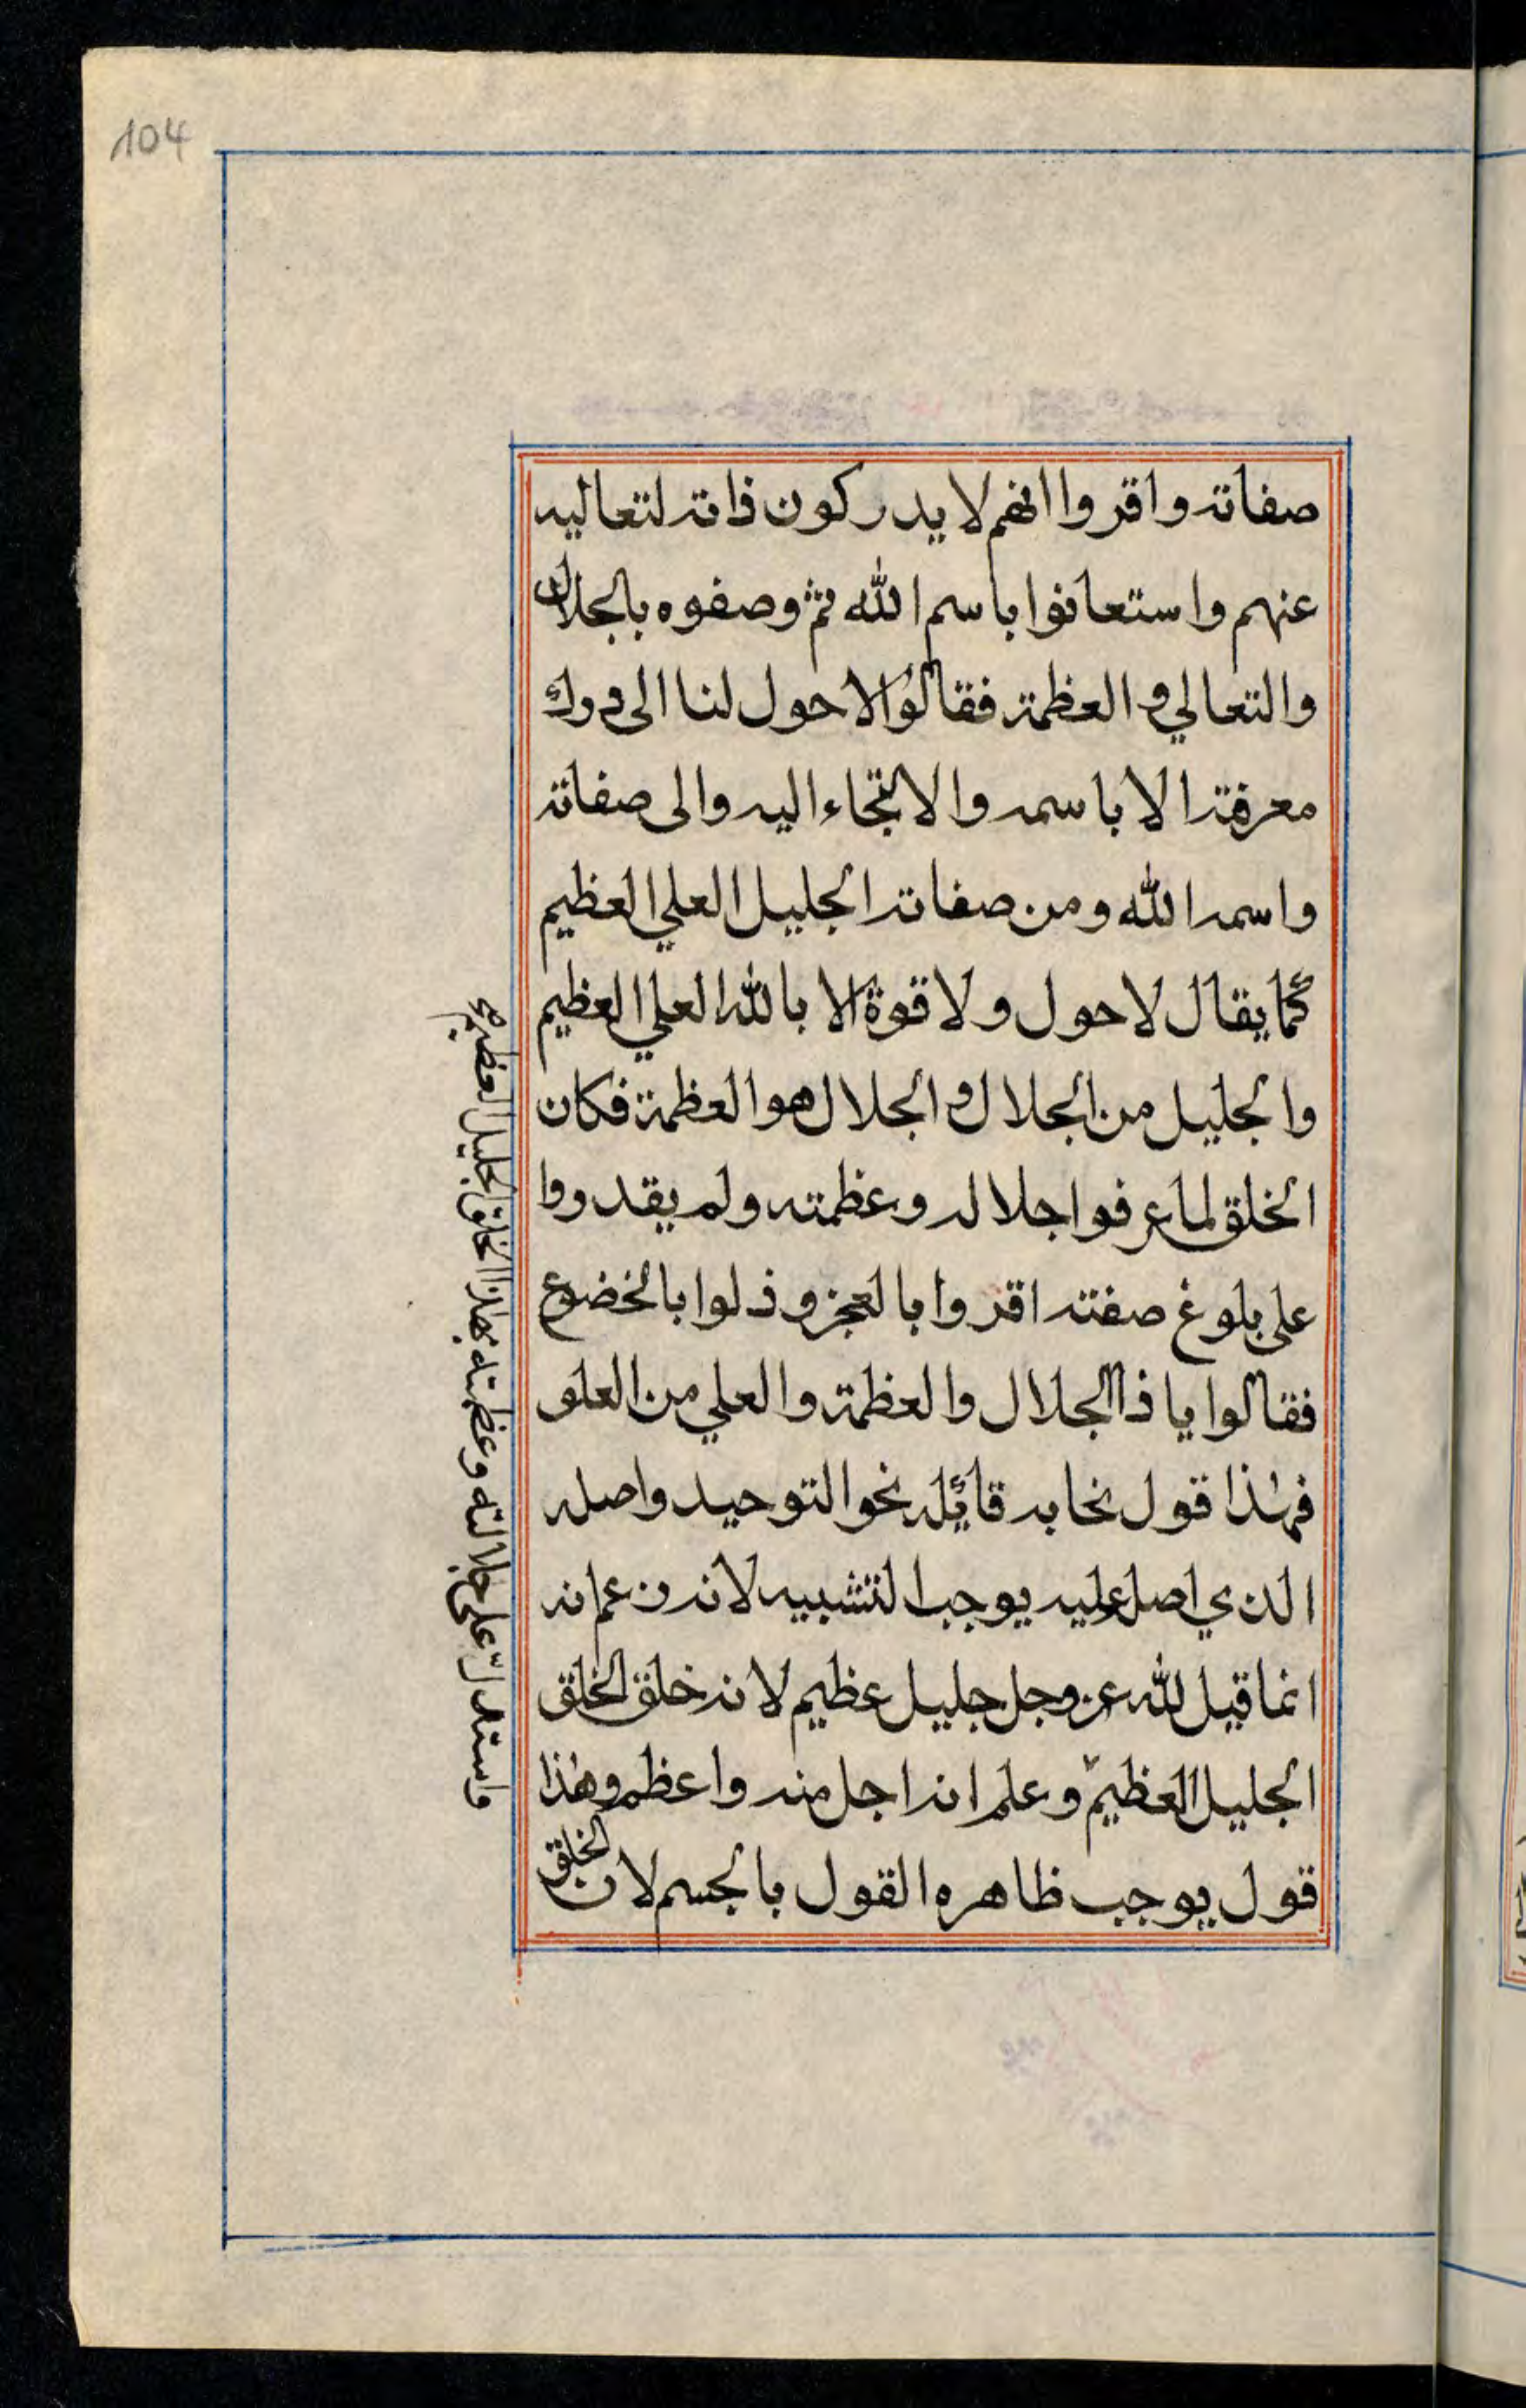 104
صفاته واقروا انهم لا يدركون ذاته لتعاليه
عنهم واستعانوا باسم الله ثم وصفوه بالجلال
والتعالي والعظمة فقالوا لا حول لنا الى درك
معرفته الا باسمه والالتجاء اليه والى صفاته
واسمه الله ومن صفاته الجليل العلي العظيم
كما يقال لا حول ولا قوة الا بالله العلي العظيم
والجليل من الجلال والجلال هو العظمة فكان
الخلق لما عرفوا جلاله وعظمته ولم يقدروا
على بلوغ صفته اقروا بالعجز وذلوا بالخضوع
فقالوا يا ذا الجلال والعظمة والعلي من العلو
فهذا قول نحا به قائله نحو التوحيد واصله
الذي اصل عليه يوجب التشبيه لانه زعم انه
انما قيل لله عز وجل جليل عظيم لانه خلق الخلق
الجليل العظيم وعلم انه اجل منه واعظم وهذا
قول يوجب ظاهره القول بالجسم لان الخلق
واستدل على جلالته وعظمته بهذا الخلق الجليل العظيم صح